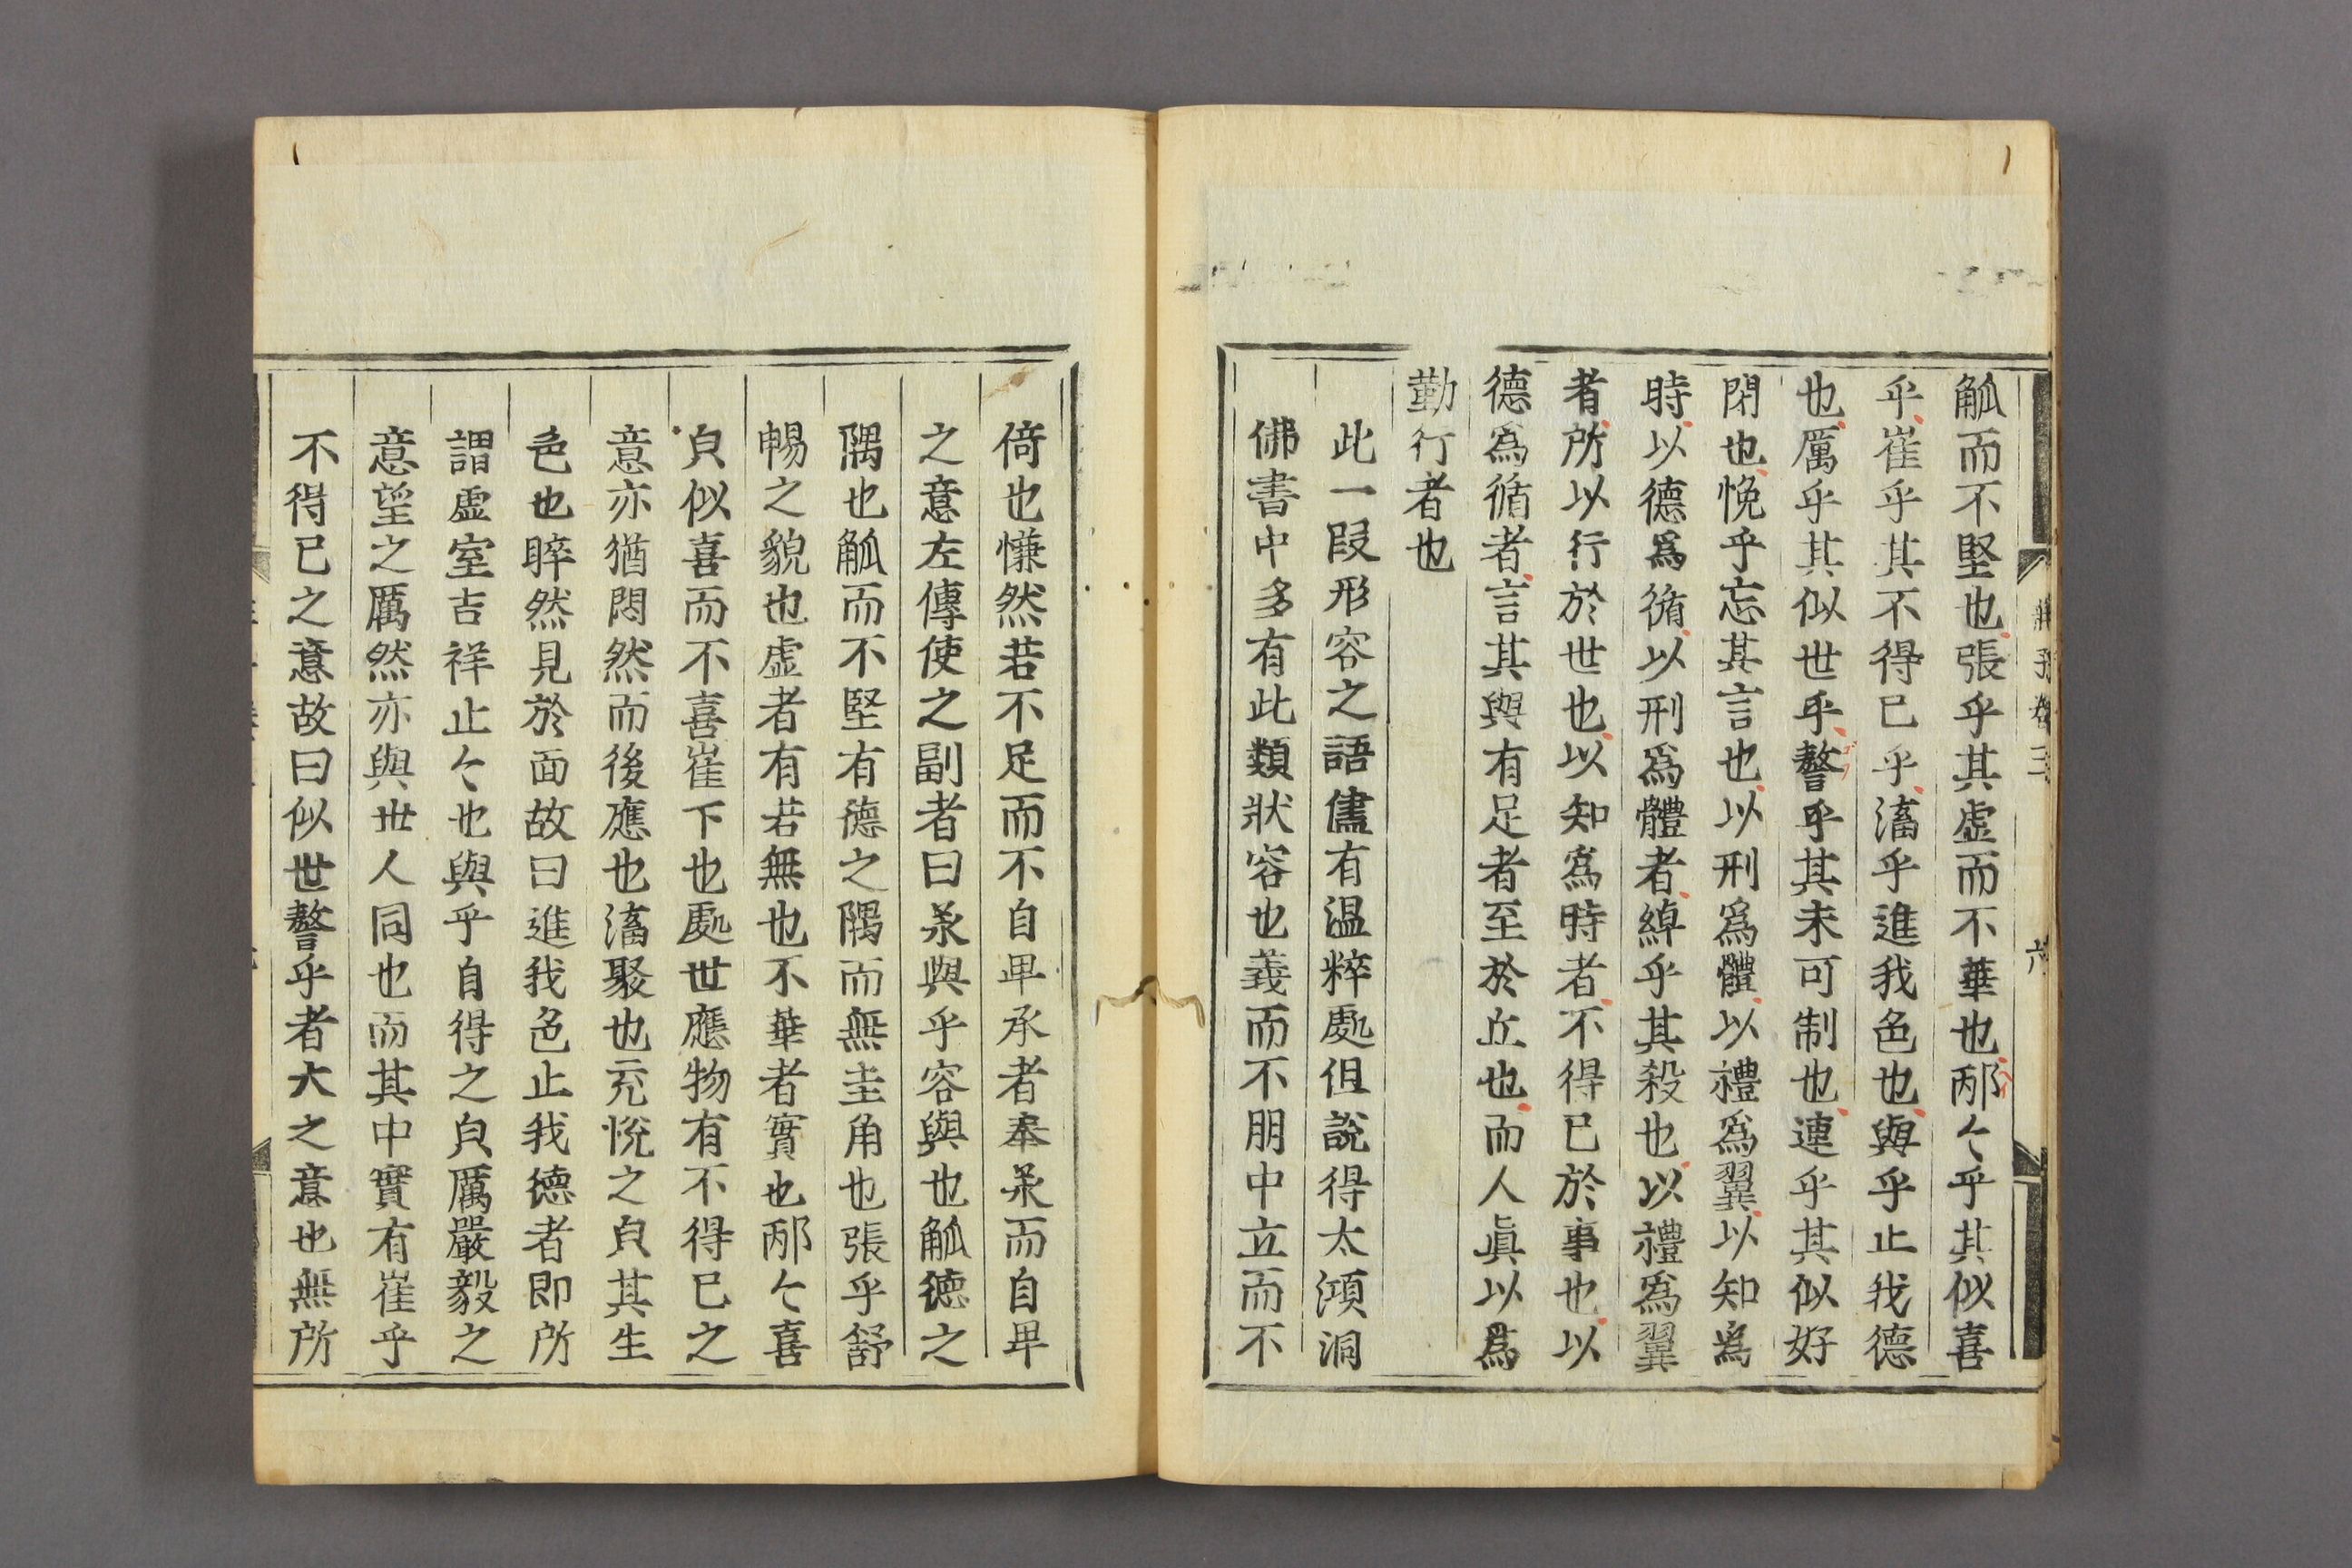 莊子卷三
六
觚而不堅也張乎其虛而不華也邴〻乎其似喜
乎崔乎其不得已乎滀乎進我色也與乎止我德
也厲乎其似世乎謷乎其未可制也連乎其似好
閉也悗乎忘其言也以刑爲體以禮爲翼以知爲
時以德爲循以刑爲體者綽乎其殺也以禮爲翼
者所以行於世也以知爲時者不得已於事也以
德爲循者言其與有足者至於丘也而人眞以爲
勤行者也
此一段形容之語儘有温粹處但說得太澒洞
佛書中多有此類狀容也義而不朋中立而不
倚也慊然若不足而不自卑承者奉承而自卑
之意左傳使之副者曰承與乎容與也觚德之
隅也觚而不堅有德之隅而無圭角也張乎舒
暢之貌也虛者有若無也不華者實也邴〻喜
皃似喜而不喜崔下也處世應物有不得已之
意亦猶悶然而後應也滀聚也充悅之皃其生
色也睟然見於面故曰進我色止我德者即所
謂虛室吉祥止〻也與乎自得之皃厲嚴毅之
意望之厲然亦與世人同也而其中實有崔乎
不得已之意故曰似世謷乎者大之意也無所